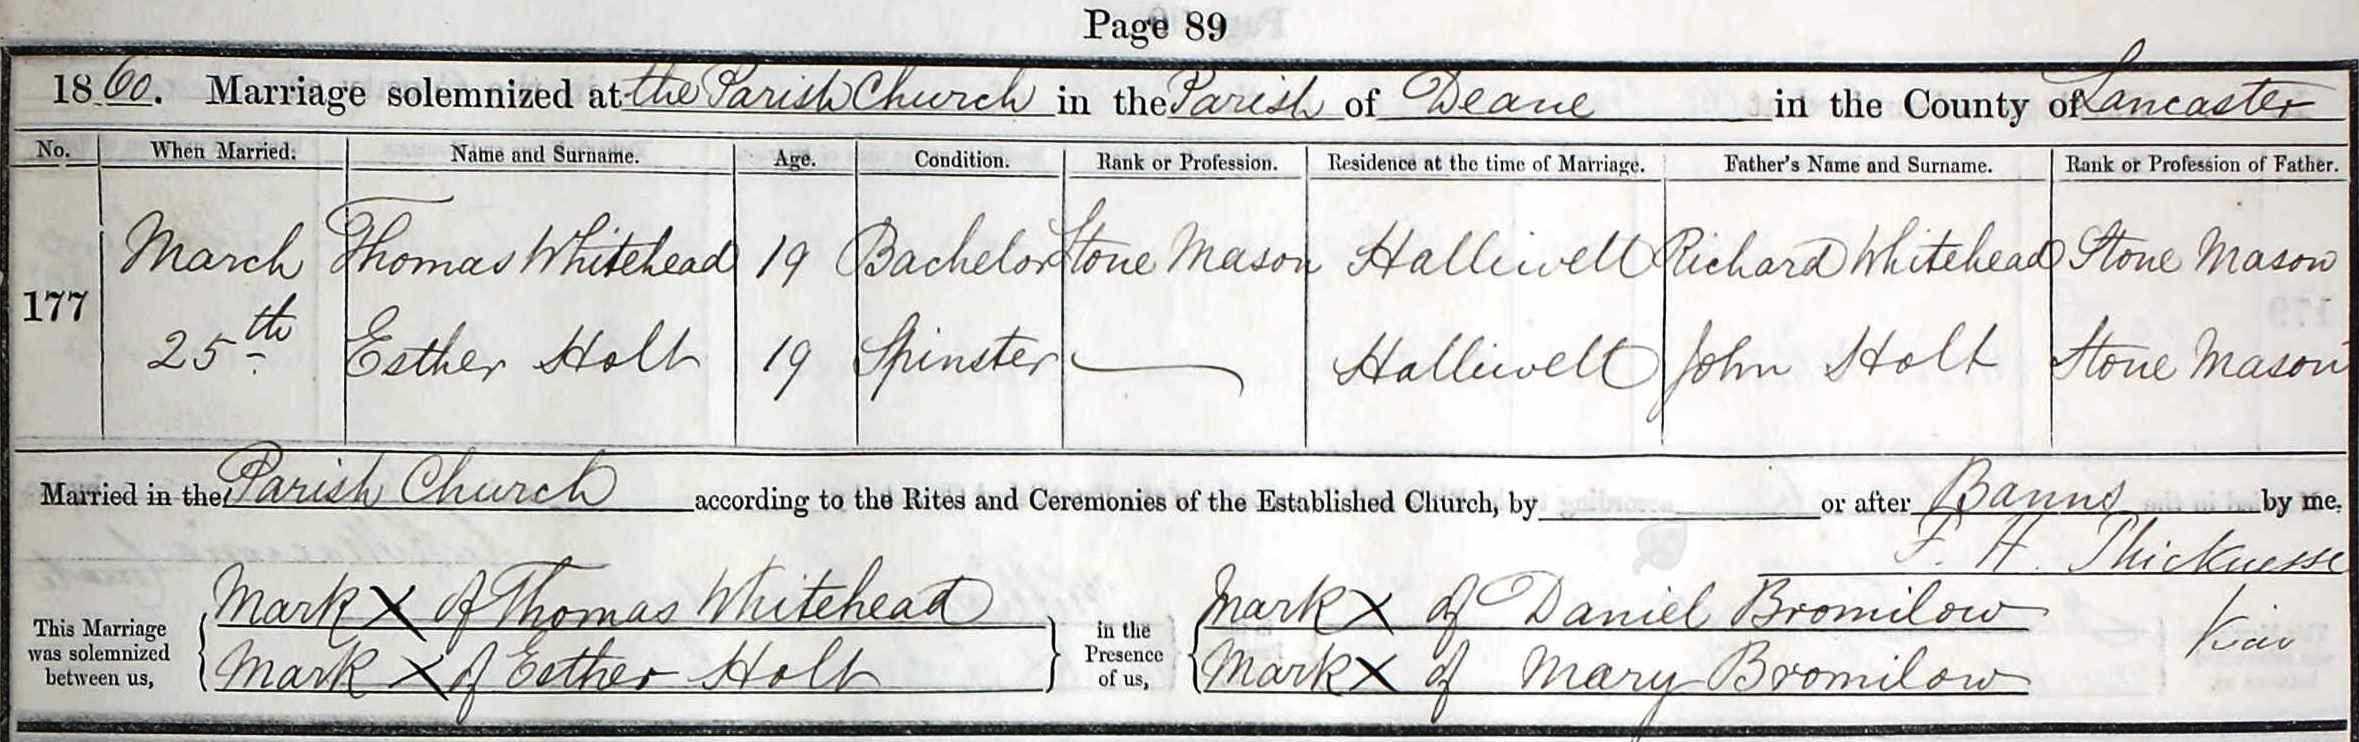 Page 89
1860. Marriage solemnized at the Parish Church in the Parish of Deane in the County of Lancaster
No. When Married. Name and Surname. Age. Condition. Rank or Profession. Residence at the time of Marriage. Father's Name and Surname. Rank or Profession of Father.
March Thomas Whitehead 19 Bachelor Stone Mason Halliwell Richard Whitehead Stone Mason
177
25th Esther Holt 19 Spinster Halliwell John Holt Stone Mason
Married in the Parish Church according to the Rites and Ceremonies of the Established Church, by or after Banns by me,
F. H. Thicknesse
This Marriage was solemnized between us, Mark X of Thomas Whitehead in the Presence of us, Mark X of Daniel Bromilow
Mark X of Esther Holt Mark X of Mary Bromilow